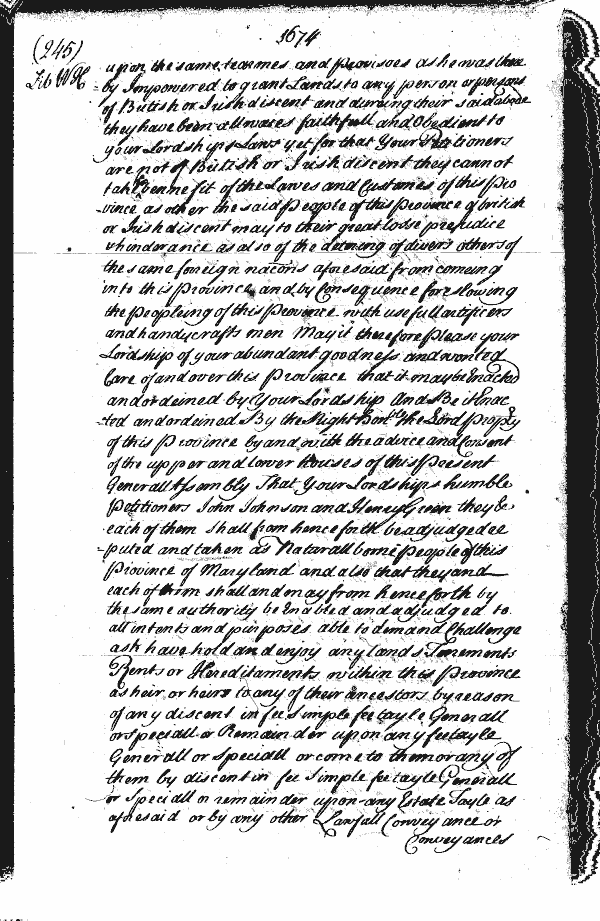 1674
(245)
Lib W H
upon the same tearmes and Provisoes as he was there
by Impowered to grant Lands to any person or persons
of British or Irish discent and dureing their said abode
they have been allwaies faithfull and Obedient to
your Lordships Laws yet for that Your Petitioners
are not of British or Irish discent they cannot
take bennefit of the Lawes and Customes of this Pro
-vince as other the said People of this Province of british
or Irish discent may to their great losse prejudice
& hinderance as also of the deterring of divers others of
the same foreign nacons aforesaid from comeing
into this Province and by Consequence foreslowing
the Peopleing of this Province with usefull artificers
and handycrafts men May it therefore Please your
Lordship of your abundant goodness and wonted
Care of and over this Province that it may be Enacted
and ordeined by Your Lordship And Be it Enac
-ted and ordeined By the Right Honble the Lord Propry
of this Province by and with the advice and Consent
of the upper and lower houses of this Present
Generall Assembly That Your Lordships humble
Petitioners John Johnson and Henry Green they &
each of them shall from henceforth be adjudged re
-puted and taken as Naturall borne People of this
Province of Maryland and also that they and
each of them shall and may from henceforth by
the same authority be Enabled and adjudged to
all intents and purposes able to demand Challenge
ask have hold and enjoy any lands Tenements
Rents or Hereditaments within this Province
as heir or heirs to any of their ancestors by reason
of any discent in fee simple fee tayle Generall
or speciall or Remainder upon any fee tayle
Generall or Speciall or come to them or any of
them by discent in fee Simple fee tayle Generall
or Speciall or remainder upon any Estate Tayle as
aforesaid or by any other Lawfull Conveyance or
Conveyances